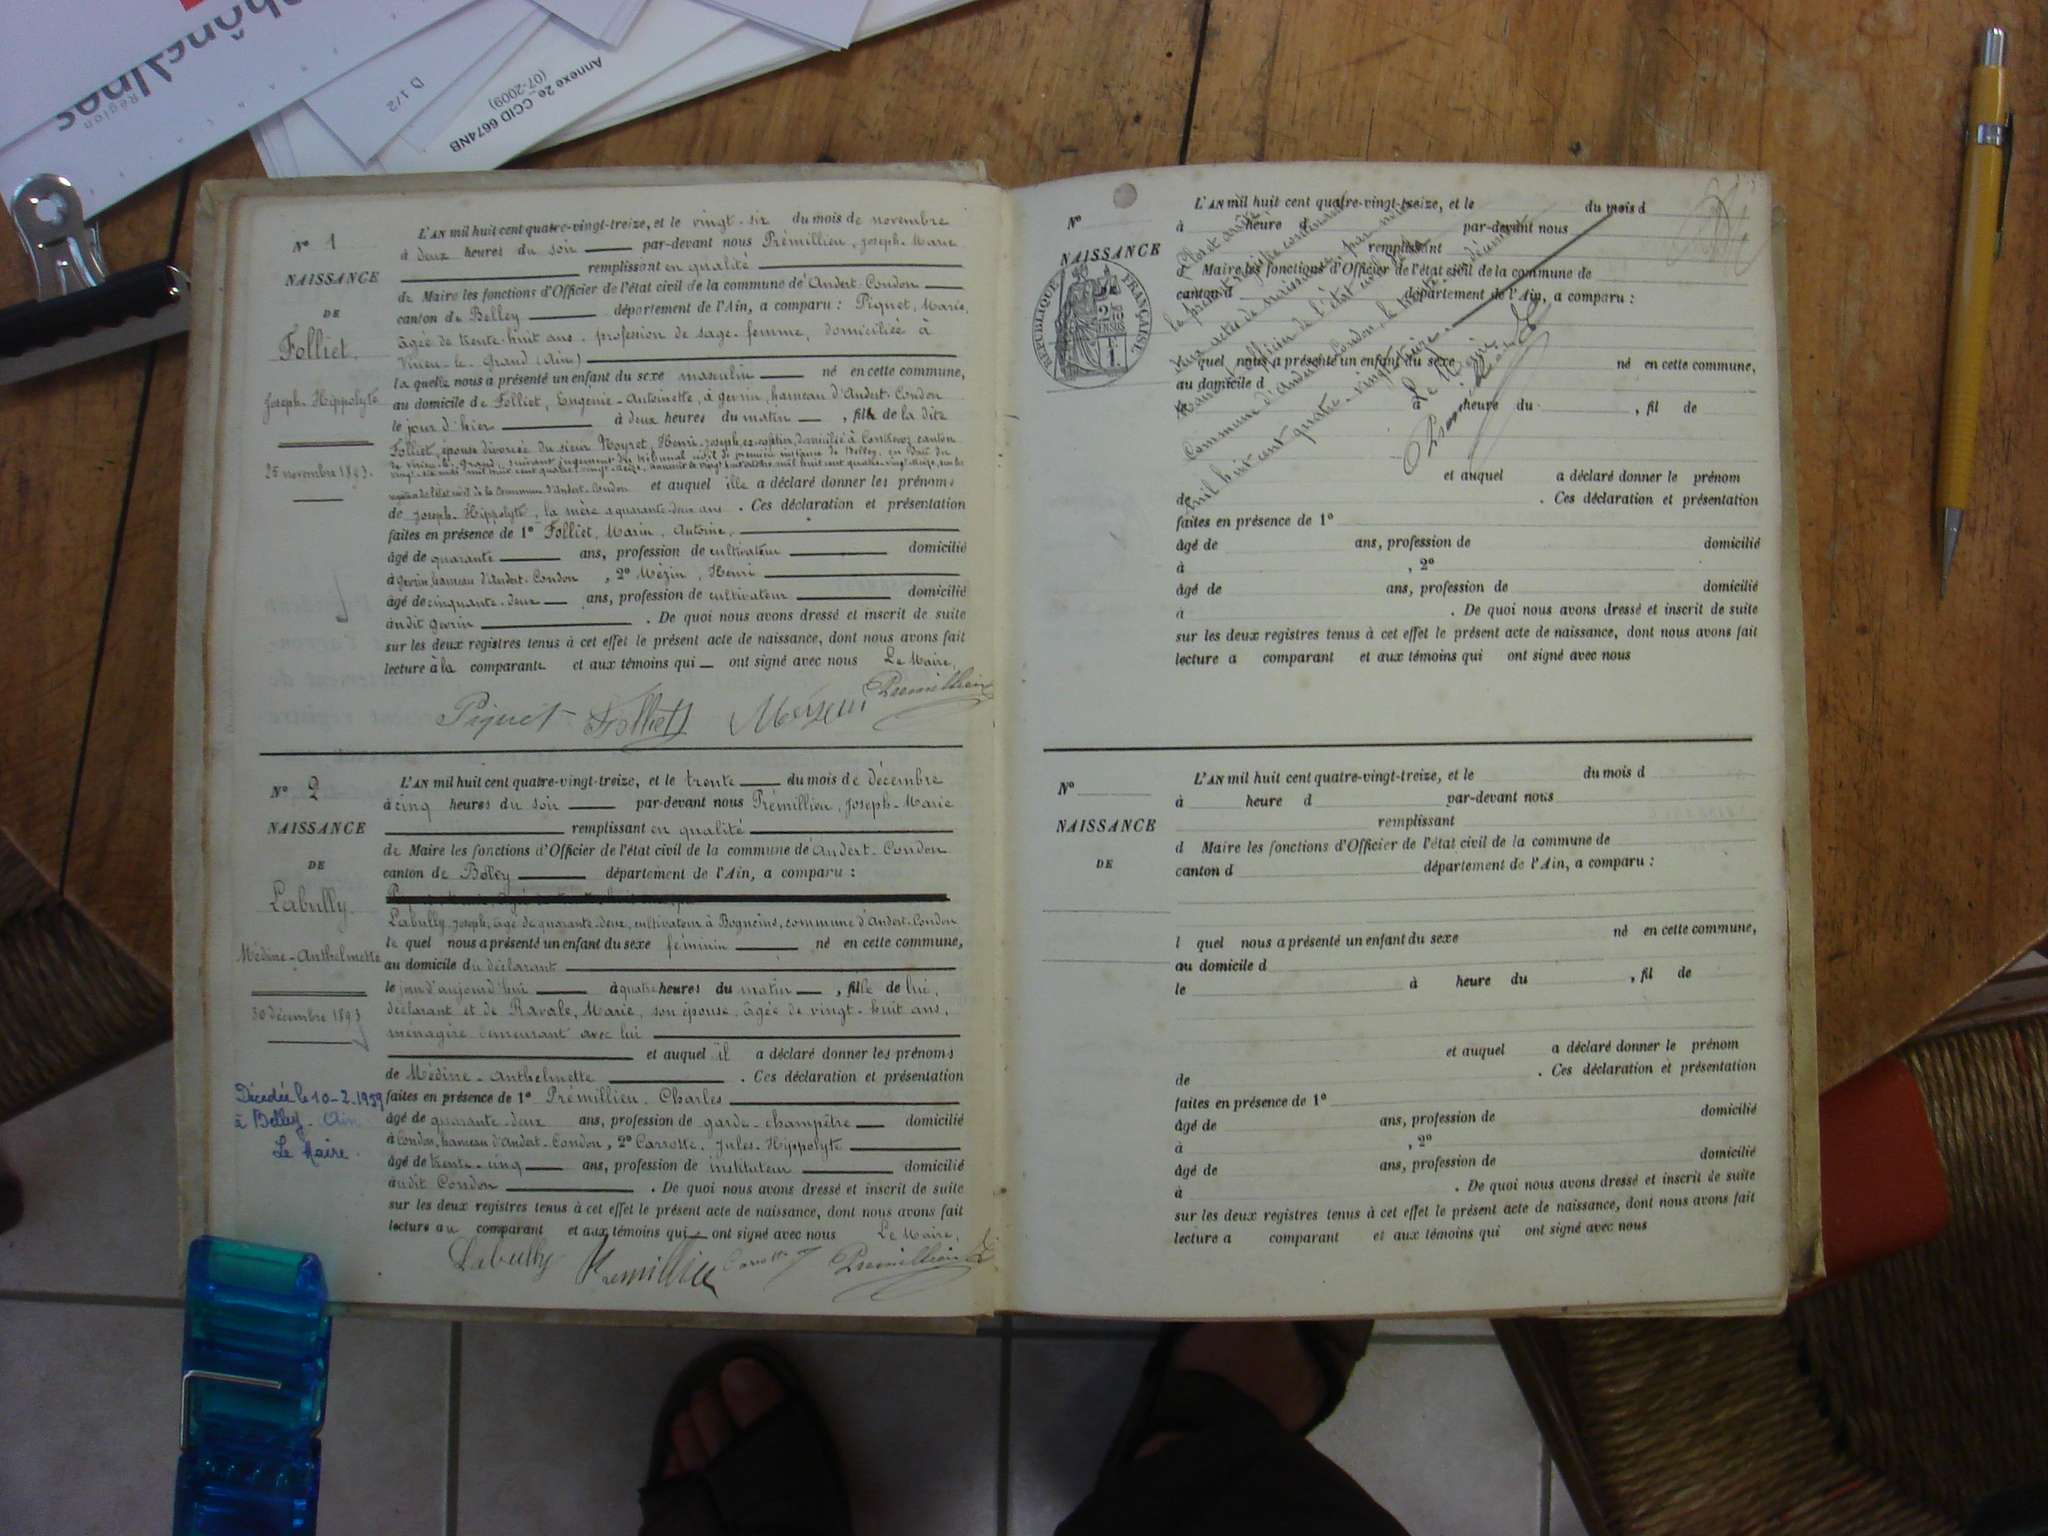 Rhône-Alpes
Région
D 1/2
Annexe 2e CCID 6674NB
(07-2009)
N° 1
NAISSANCE
DE
Folliet,
Joseph-Hippolyte
25 novembre 1893.
L'AN mil huit cent quatre-vingt-treize, et le vingt-six du mois de novembre
à deux heures du soir par-devant nous Prémillieu, Joseph-Marie
remplissant en qualité
de Maire les fonctions d'Officier de l'état civil de la commune d'Andert-Condon
canton de Belley département de l'Ain, a comparu : Piquet, Marie,
âgée de trente-huit ans, profession de sage-femme, domiciliée à
Virieu-le-Grand (Ain)
la quelle nous a présenté un enfant du sexe masculin né en cette commune,
au domicile de Folliet, Eugénie-Antoinette, à Gevrin, hameau d'Andert-Condon
le jour d'hier à deux heures du matin, fils de la dite
Folliet, épouse divorcée du sieur Noyret, Henri-Joseph, domicilié à canton
de Virieu-le-Grand, suivant jugement du tribunal civil de première instance de Belley, en date du
registres de l'état civil de la Commune d'Andert-Condon et auquel elle a déclaré donner les prénoms
de Joseph-Hippolyte, la mère a quarante-deux ans. Ces déclaration et présentation
faites en présence de 1° Folliet, Marin, Antoine,
âgé de quarante ans, profession de cultivateur domicilié
à Gevrin, hameau d'Andert-Condon, 2° Mézin, Henri
âgé de cinquante-deux ans, profession de cultivateur domicilié
audit Gevrin. De quoi nous avons dressé et inscrit de suite
sur les deux registres tenus à cet effet le présent acte de naissance, dont nous avons fait
lecture à la comparante et aux témoins qui ont signé avec nous Le Maire,
Piquet Folliet Prémillieu
N° 2
NAISSANCE
DE
Labully
Médine-Anthelmette
30 décembre 1893
Décédée le 10-2-1959
à Belley-Ain
Le Maire.
L'AN mil huit cent quatre-vingt-treize, et le trente du mois de décembre
à cinq heures du soir par-devant nous Prémillieu, Joseph-Marie
remplissant en qualité
de Maire les fonctions d'Officier de l'état civil de la commune d'Andert-Condon
canton de Belley département de l'Ain, a comparu :
Labully, Joseph, âgé de quarante-deux, cultivateur à Bogneins, commune d'Andert-Condon
le quel nous a présenté un enfant du sexe féminin né en cette commune,
au domicile du déclarant
le jour d'aujourd'hui à quatre heures du matin, fille de lui,
déclarant et de Ravale, Marie, son épouse, âgée de vingt-huit ans,
ménagère demeurant avec lui
et auquel il a déclaré donner les prénoms
de Médine-Anthelmette. Ces déclaration et présentation
faites en présence de 1° Prémillieu, Charles
âgé de quarante-deux ans, profession de garde-champêtre domicilié
à Condon, hameau d'Andert-Condon, 2° Carrotte, Jules-Hippolyte
âgé de trente-cinq ans, profession de instituteur domicilié
audit Condon. De quoi nous avons dressé et inscrit de suite
sur les deux registres tenus à cet effet le présent acte de naissance, dont nous avons fait
lecture au comparant et aux témoins qui ont signé avec nous Le Maire,
Labully Premillieu Carrotte Prémillieu
N°
NAISSANCE
RÉPUBLIQUE FRANÇAISE
L'AN mil huit cent quatre-vingt-treize, et le du mois d
à heure d par-devant nous
remplissant
d Maire les fonctions d'Officier de l'état civil de la commune de
canton d département de l'Ain, a comparu :
l quel nous a présenté un enfant du sexe né en cette commune,
au domicile d
le à heure du , fil de
et auquel a déclaré donner le prénom
de . Ces déclaration et présentation
faites en présence de 1°
âgé de ans, profession de domicilié
à , 2°
âgé de ans, profession de domicilié
à . De quoi nous avons dressé et inscrit de suite
sur les deux registres tenus à cet effet le présent acte de naissance, dont nous avons fait
lecture a comparant et aux témoins qui ont signé avec nous
Clos et arrêté
le présent registre contenant
deux actes de naissance, par nous
Maire et officier de l'état civil de la
Commune d'Andert-Condon, le trente-un décembre
mil huit cent quatre-vingt-treize.
Le Maire
Prémillieu
N°
NAISSANCE
DE
L'AN mil huit cent quatre-vingt-treize, et le du mois d
à heure d par-devant nous
remplissant
d Maire les fonctions d'Officier de l'état civil de la commune de
canton d département de l'Ain, a comparu :
l quel nous a présenté un enfant du sexe né en cette commune,
au domicile d
le à heure du , fil de
et auquel a déclaré donner le prénom
de . Ces déclaration et présentation
faites en présence de 1°
âgé de ans, profession de domicilié
à , 2°
âgé de ans, profession de domicilié
à . De quoi nous avons dressé et inscrit de suite
sur les deux registres tenus à cet effet le présent acte de naissance, dont nous avons fait
lecture a comparant et aux témoins qui ont signé avec nous